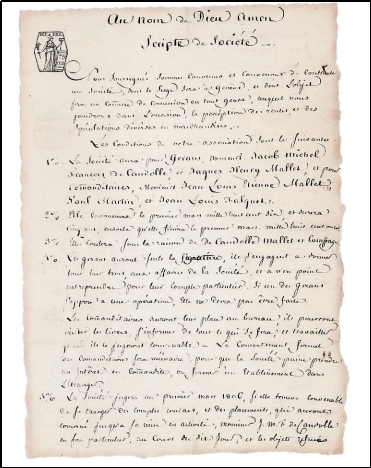 Au nom de Dieu Amen
Scripte de Société
Nous soussignés sommes convenus et convenons de contracter
une Société, dont le Siège sera à Genève, et dont l'objet
sera un commerce de Commission en tout genre, auquel nous
joindrons dans l'occasion, la perception des rentes, et des
Spéculations diverses en marchandises.
Les Conditions de notre association sont les suivantes
1º. La Société aura pour Gérans, Messieurs Jacob Michel
François de Candolle, et Jaques Henry Mallet, et pour
Comanditaires, Messieurs Jean Louis Etienne Mallet,
Paul Martin, et Jean Louis Falquet.
2º. Elle commencera le premier mars mille huit cent six et durera
Cinq ans, ensorte qu'elle finira le premier mars, mille huit cent onze
3º. Elle roulera sous la raison de de Candolle Mallet et Compagnie
Les gérans auront seuls la Signature, ils s'engagent à donner
tout leur tems aux affaires de la Société, et à n'en point
entreprendre pour leur compte particulier. Si un des gérans
s'oppose à une opération, elle ne devra pas être faite.
Les Commanditaires auront leur place au bureau, ils pourront
visiter les livres, s'informer de tout ce qui se fera, et travailler
quand ils le jugeront convenable. Le Consentement formel
des Commanditaires sera nécessaire pour que la Société puisse prendre
un intérêt en Commandite, ou former un établissement dans
l'Etranger.
La Société jugera au premier mars 1806, si elle trouve convenable
de se charger des comptes courans, et des placemens, qui auront
concerné jusqu'à sa mise en activité, monsieur J. M. F. de Candolle
en son particulier, au cours du dit jour, et les objets refusés